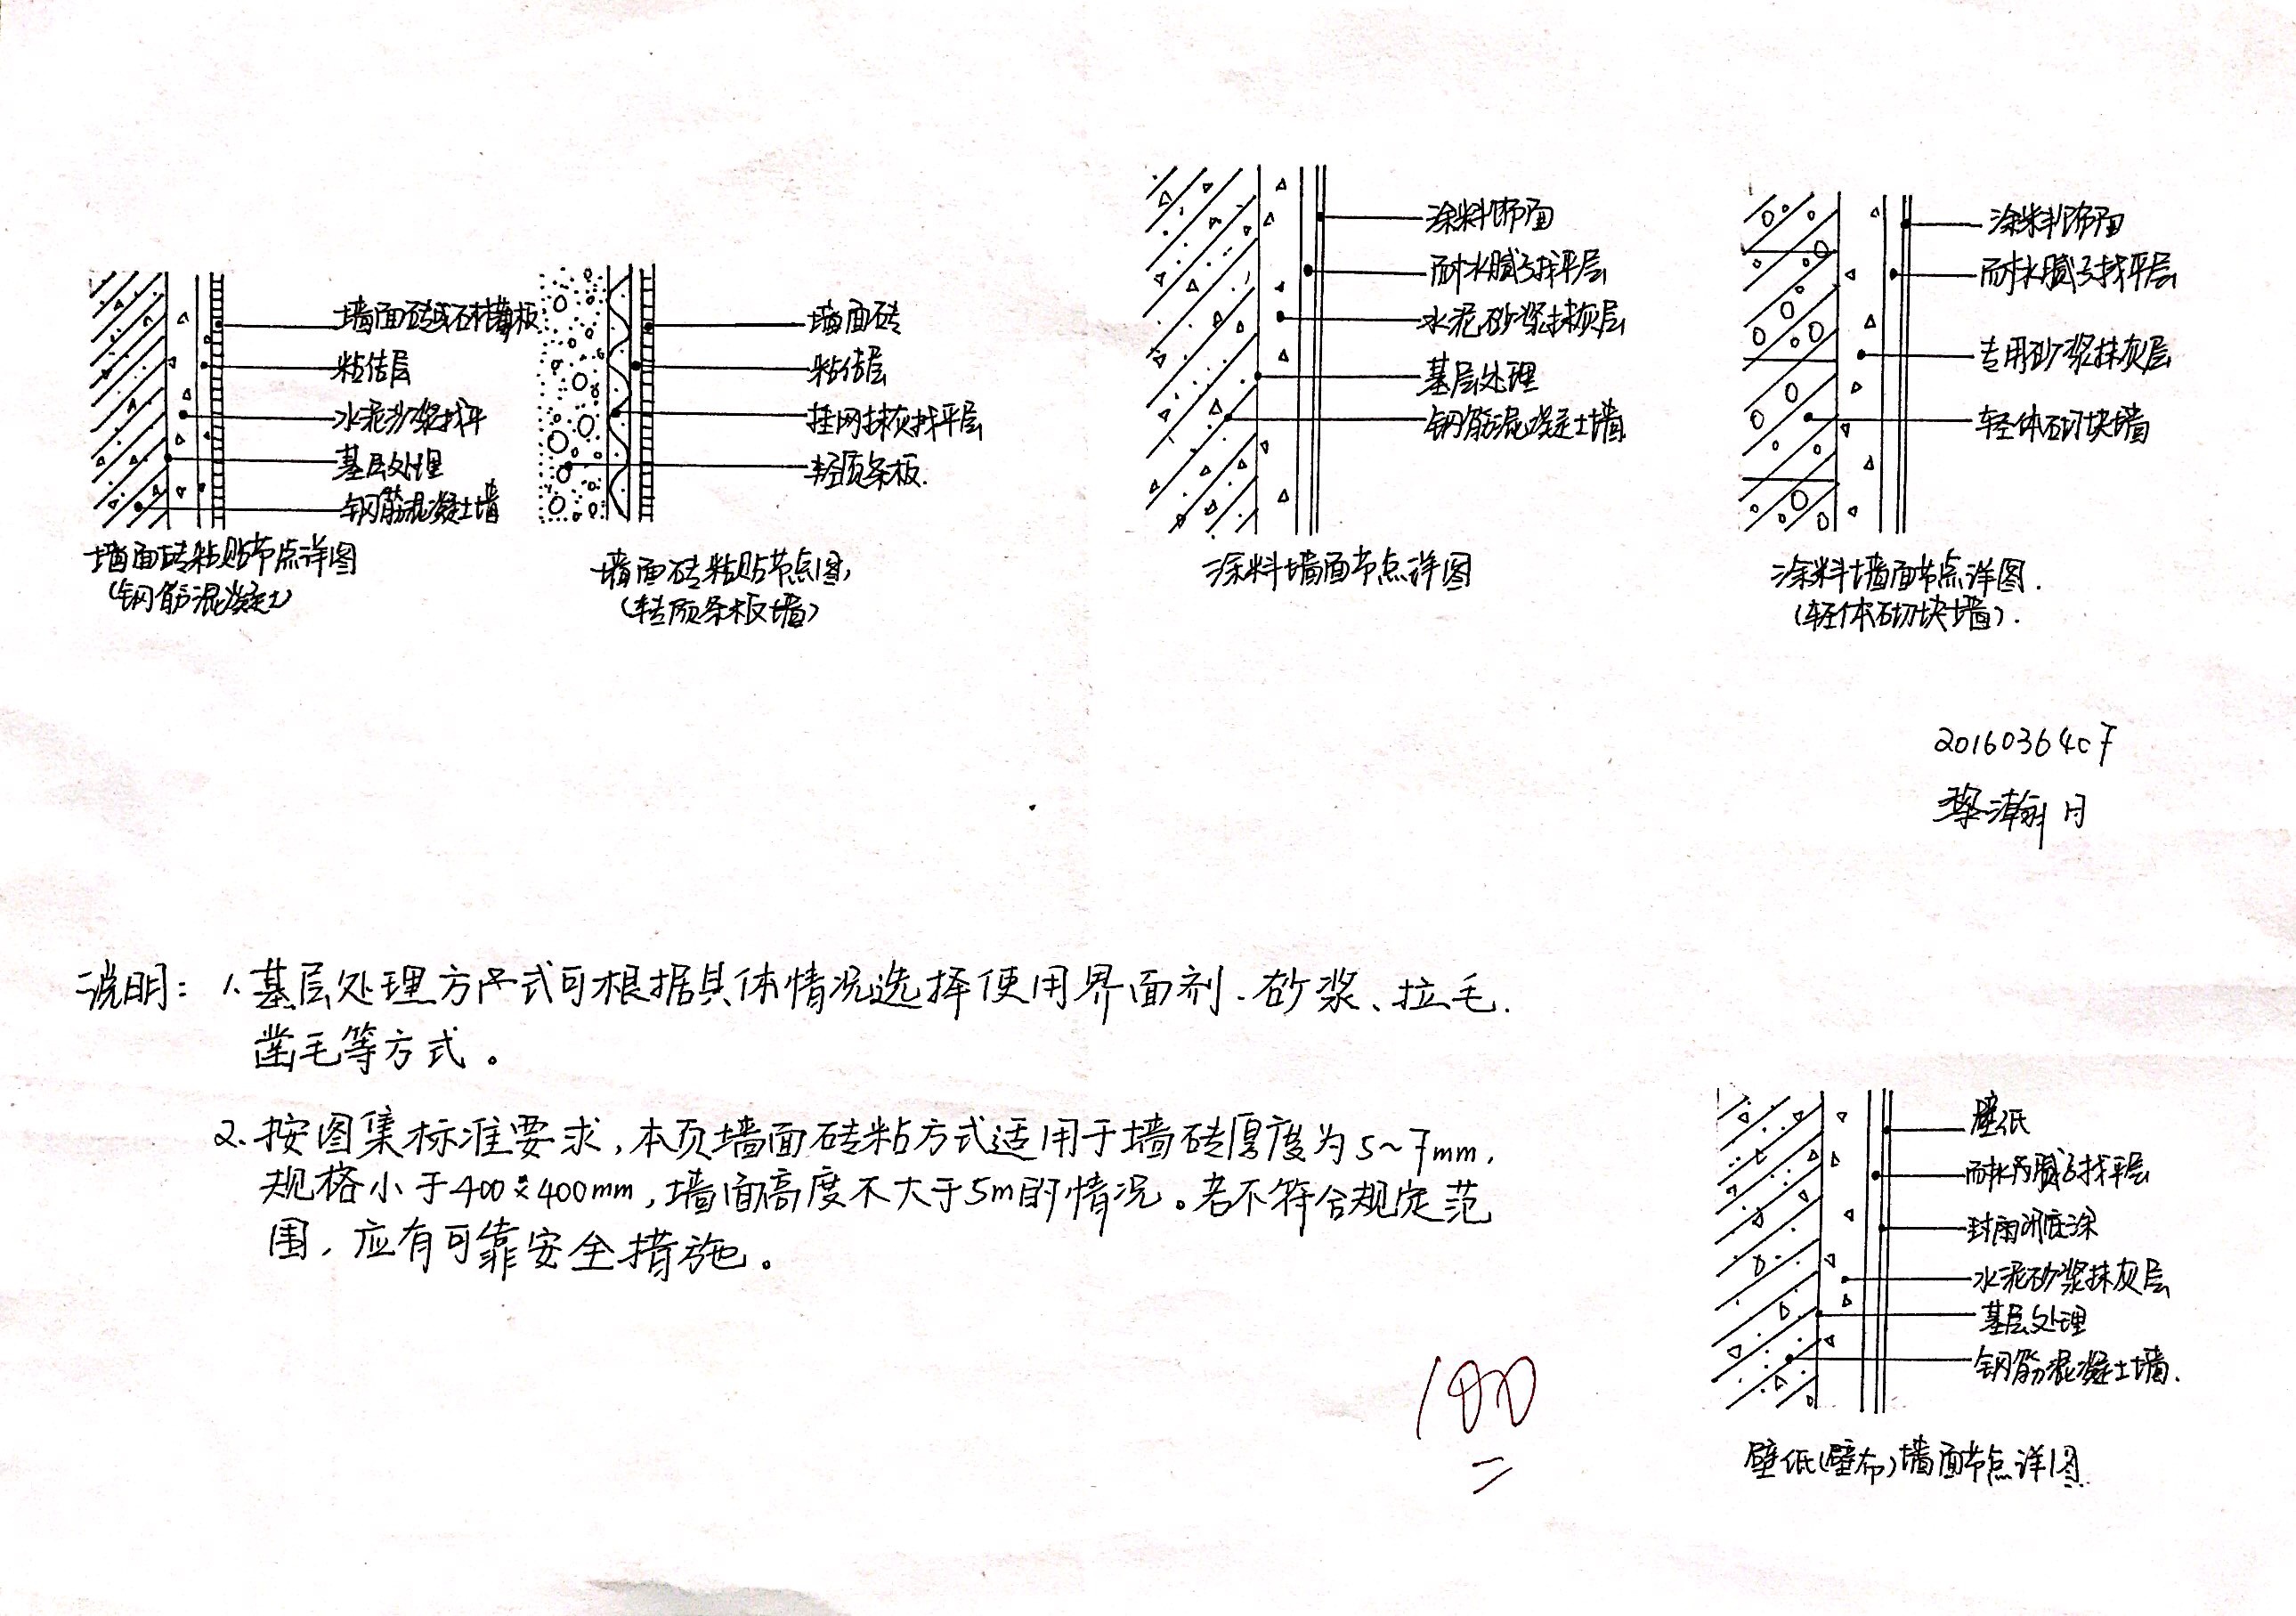 墙面砖或石材薄板
粘结层
水泥沙浆找平
基层处理
钢筋混凝土墙
墙面砖粘贴节点详图
(钢筋混凝土)
墙面砖
粘结层
挂网抹灰找平层
轻质条板.
墙面砖粘贴节点图,
(轻质条板墙)
涂料饰面
耐水腻子找平层
水泥砂浆抹灰层
基层处理
钢筋混凝土墙
涂料墙面节点详图
涂料饰面
耐水腻子找平层
专用砂浆抹灰层
轻体砌块墙
涂料墙面节点详图.
(轻体砌块墙).
瀚月
说明: 1.基层处理方式可根据具体情况选择使用界面剂、砂浆、拉毛.
凿毛等方式。
2.按图集标准要求,本页墙面砖粘方式适用于墙砖厚度为5~7mm,
规格小于400×400mm,墙面高度不大于5m的情况。若不符合规定范
围,应有可靠安全措施。
100
壁纸
耐水腻子找平层
封闭底涂
水泥砂浆抹灰层
基层处理
钢筋混凝土墙.
壁纸(壁布)墙面节点详图.